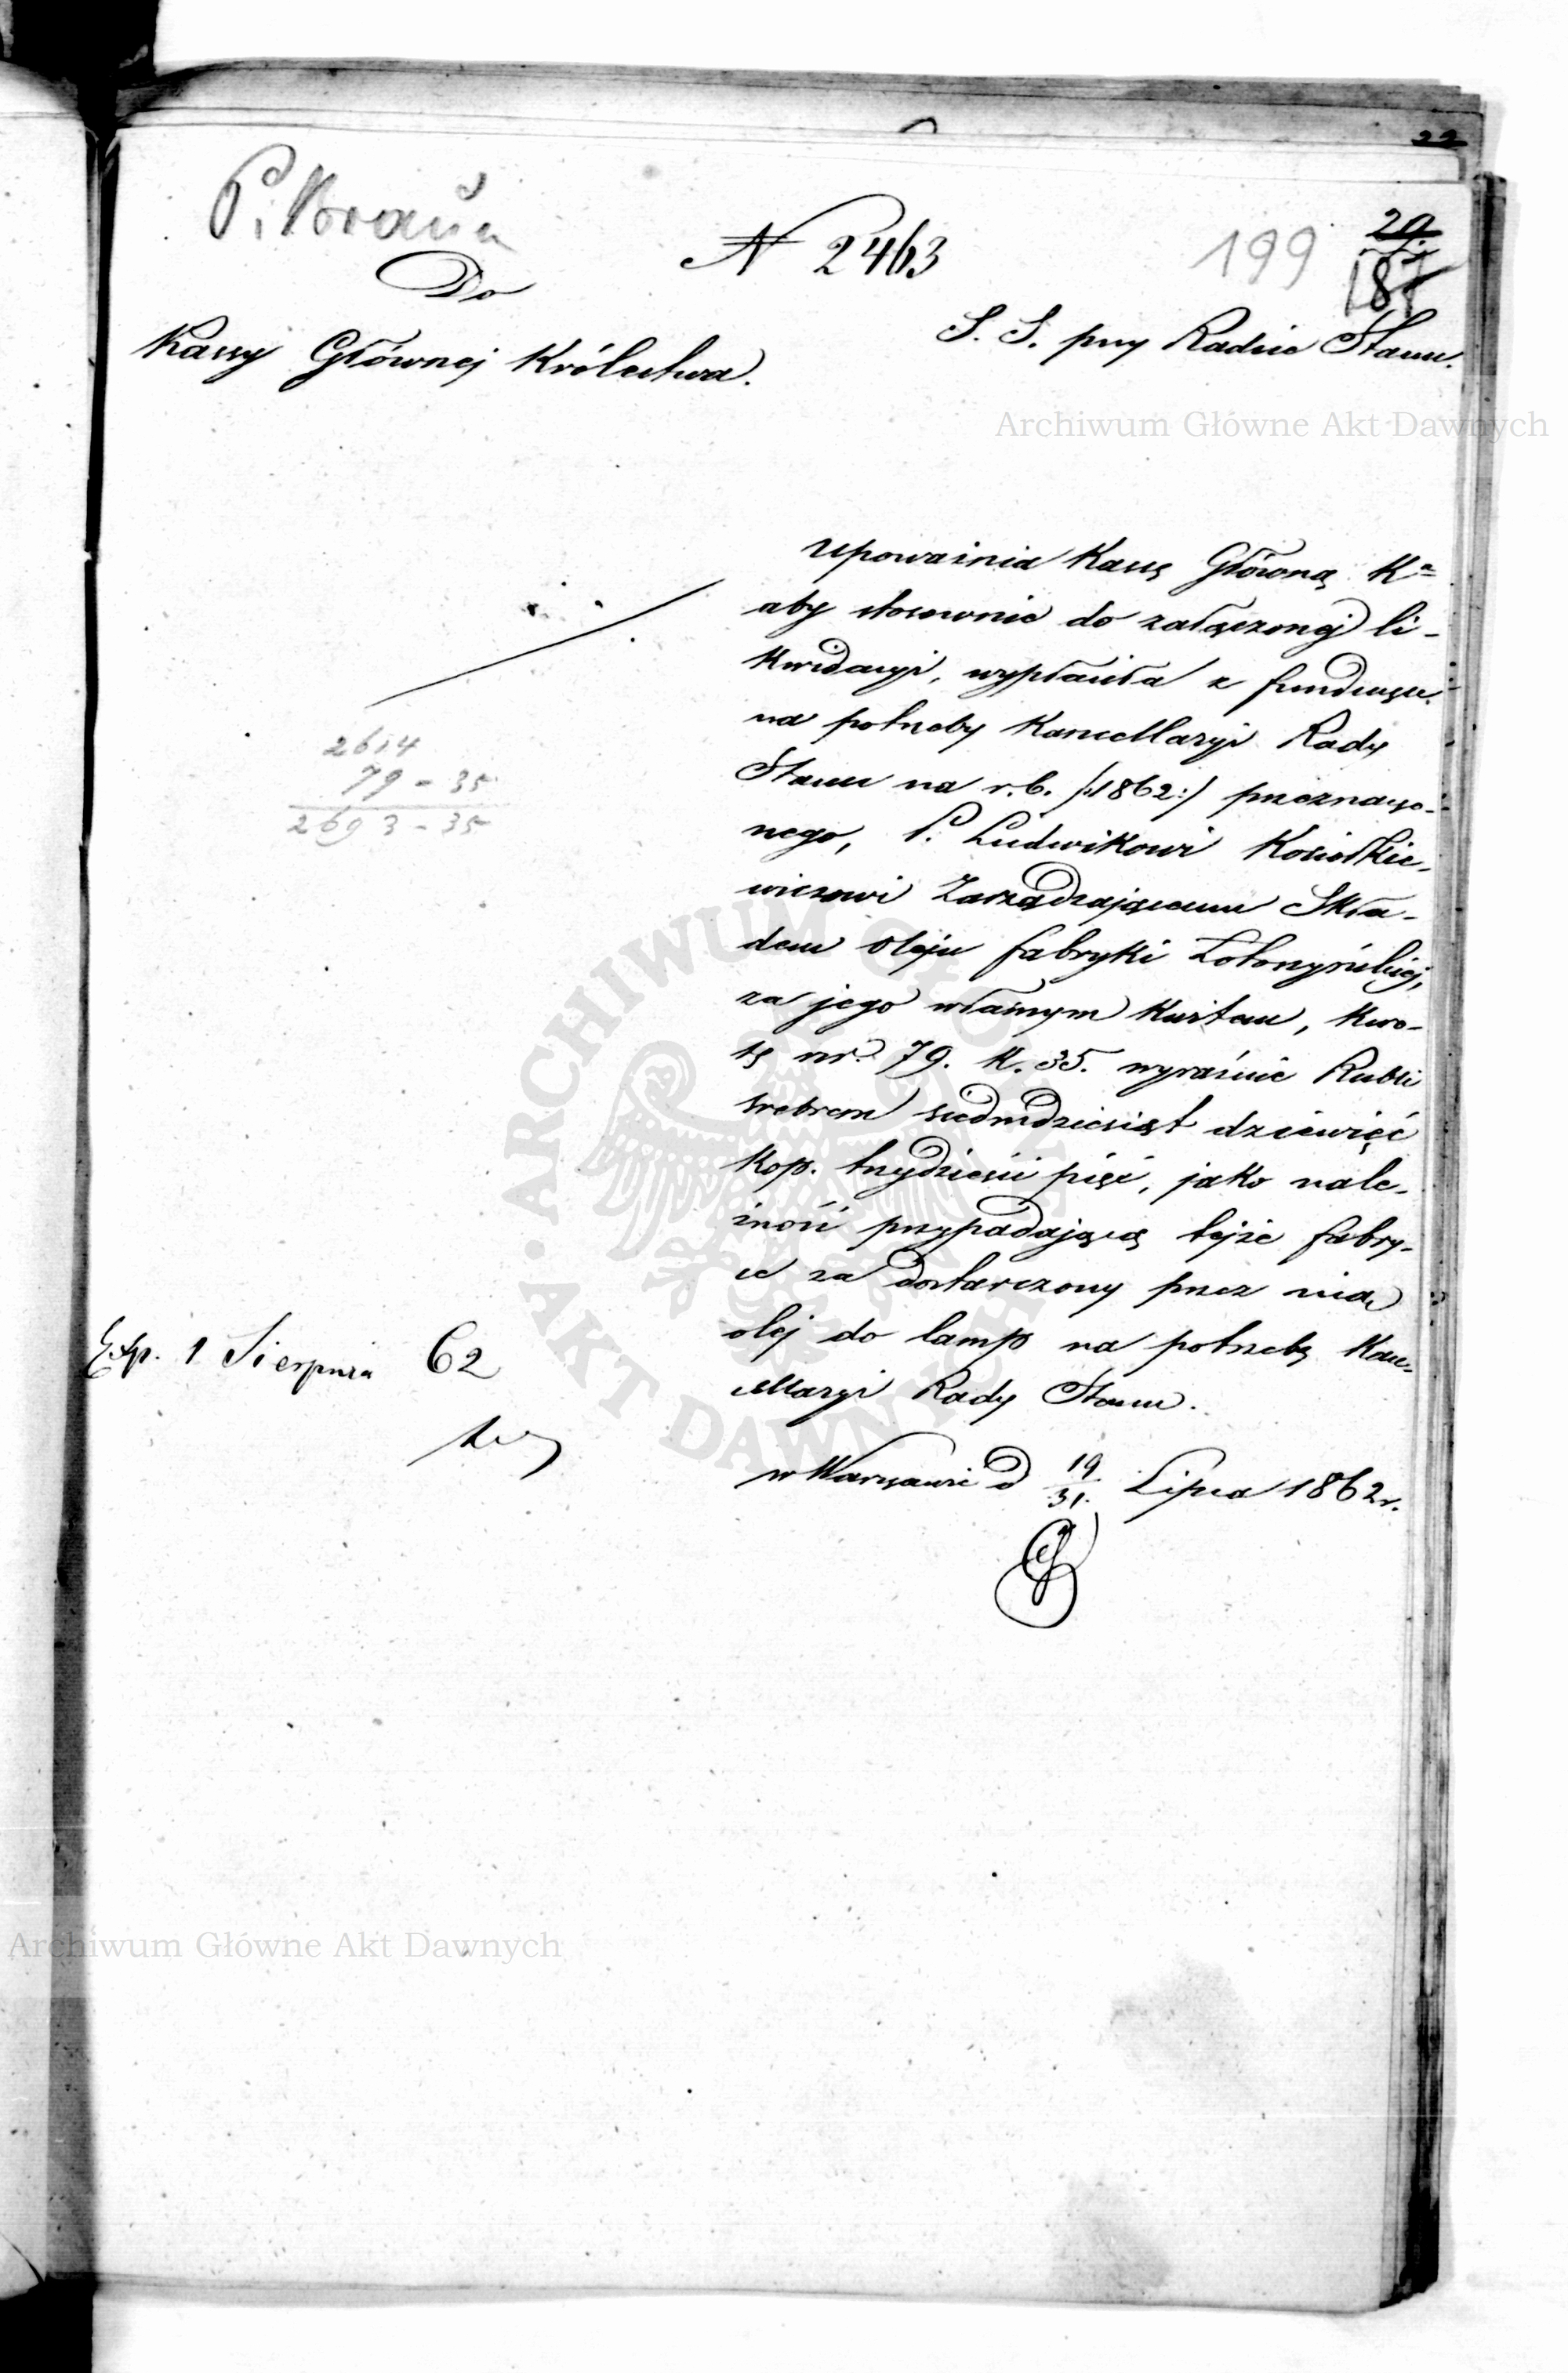 22
P. Braun
N 2463
199
29
187
Do
Kassy Głównej Królestwa.
S. S. przy Radzie Stanu.
Archiwum Główne Akt Dawnych
Upoważnia Kassę Główną Kª
aby stosownie do załączonej li-
kwidacyi, wypłaciła z funduszu
na potrzeby Kancellaryi Rady
Stanu na r. b. /:1862:/ przeznaczo-
nego, P. Ludwikowi
wiczowi Zarządzającemu Skła-
dem oleju fabryki
za jego własnym kwitem, kwo-
tę rsr. 79. k. 35. wyraźnie Rubli
srebrem siedmdziesiąt dziewięć
kop. trzydzieści pięć, jako nale-
żność przypadającą tejże fabry-
ce za dostarczony przez nią
olej do lamp na potrzebę Kan-
cellaryi Rady Stanu.
w Warszawie d 19/31 Lipca 1862 r.
2614
79 - 35
2693 - 35
Exp. 1 Sierpnia 62
ARCHIWUM GŁÓWNE AKT DAWNYCH
Archiwum Główne Akt Dawnych